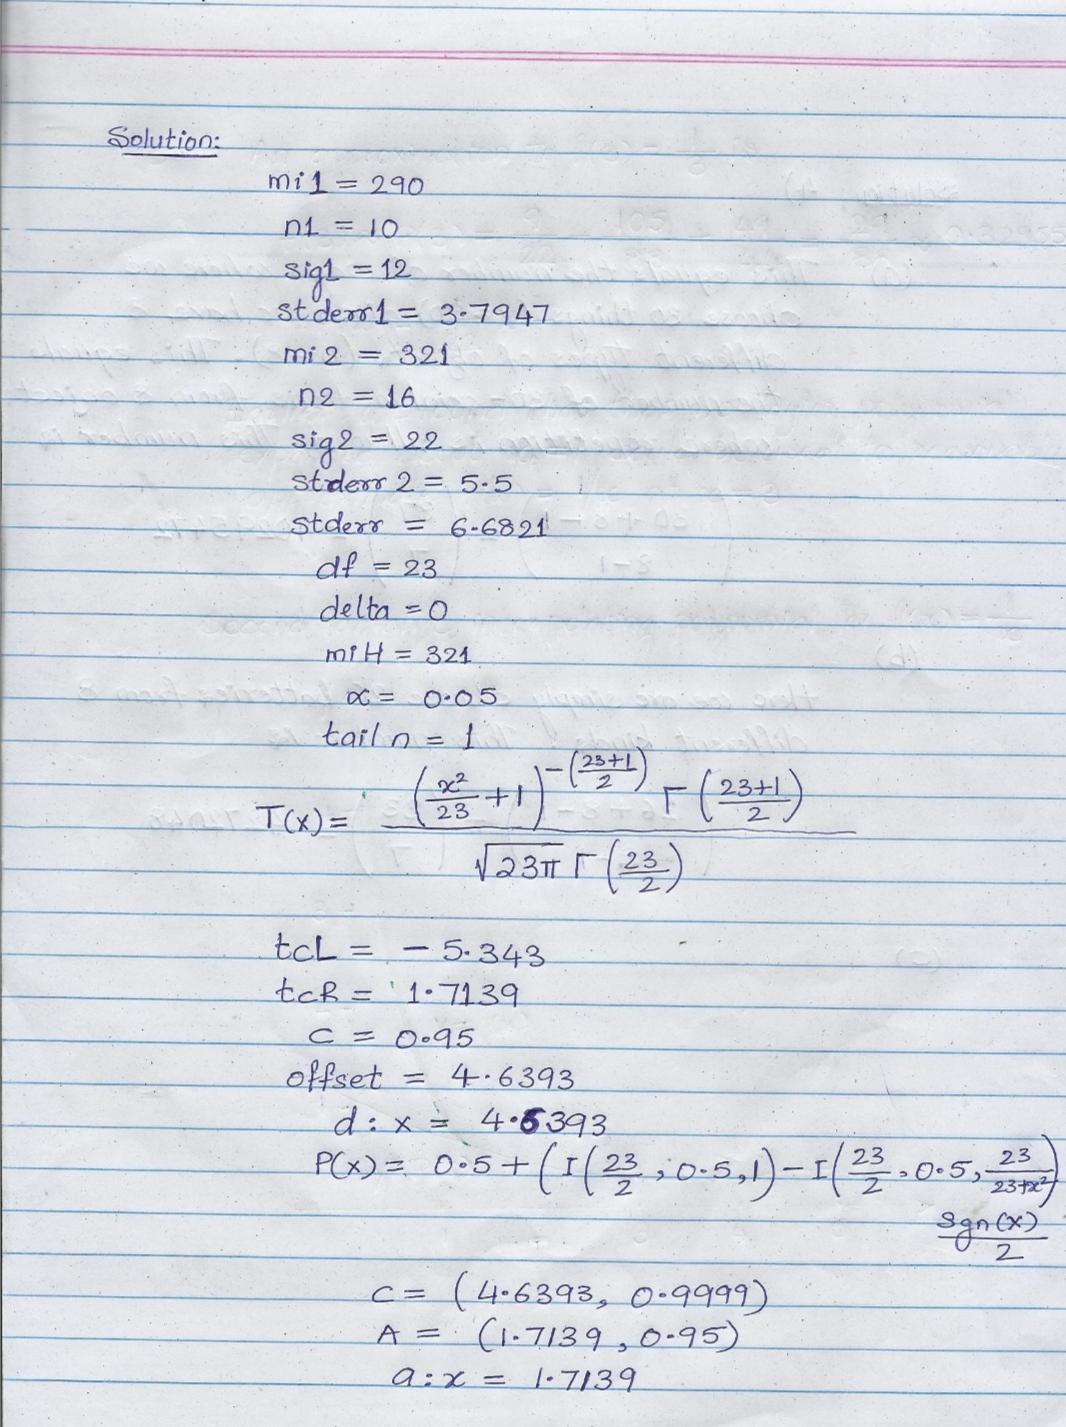 Solution:
mi1 = 290
n1 = 10
sig1 = 12
stderr1 = 3.7947
mi2 = 321
n2 = 16
sig2 = 22
stderr2 = 5.5
stderr = 6.6821
df = 23
delta = 0
miH = 321
α = 0.05
tail n = 1
T(x) = ((x²/23 + 1)^-((23+1)/2) Γ((23+1)/2)) / (√23π Γ(23/2))
tcL = - 5.343
tcR = 1.7139
C = 0.95
offset = 4.6393
d : x = 4.6393
P(x) = 0.5 + (I(23/2, 0.5, 1) - I(23/2, 0.5, 23/(23+x²)) sgn(x)/2
C = (4.6393, 0.9999)
A = (1.7139, 0.95)
a : x = 1.7139